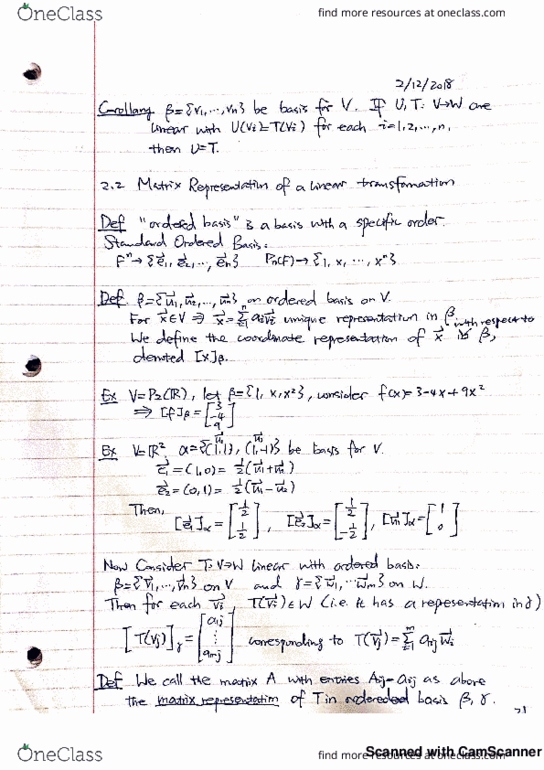 OneClass find more resources at oneclass.com
2/12/2018
Corollary β={v₁,...,vₙ} be basis for V. If U, T: V→W are
linear with U(vᵢ)=T(vᵢ) for each i=1,2,...,n,
then U=T.
2.2 Matrix Representation of a linear transformation
Def "ordered basis" is a basis with a specific order.
Standard Ordered Basis:
Fⁿ→{e⃗₁, e⃗₂, ..., e⃗ₙ} Pₙ(F)→{1, x, ..., xⁿ}
Def. β={u⃗₁, u⃗₂, ..., u⃗ₙ} an ordered basis on V.
For x⃗∈V ⇒ x⃗=Σⁿᵢ₌₁ aᵢv⃗ᵢ unique representation in β.
We define the coordinate representation of x⃗ with respect to β,
denoted [x]β.
Ex V=P₂(ℝ), let β={1, x, x²}, consider f(x)=3-4x+9x²
⇒ [f]β = [3 -4 9]
Ex V=ℝ², α={(1,1), (1,-1)} be basis for V.
u⃗₁ u⃗₂
e⃗₁=(1,0)=½(u⃗₁+u⃗₂)
e⃗₂=(0,1)=½(u⃗₁-u⃗₂)
Then,
[e⃗₁]α=[½ ½], [e⃗₂]α=[½ -½], [u⃗₁]α=[1 0]
Now Consider T: V→W linear with ordered basis:
β={v⃗₁,...,v⃗ₙ} on V and γ={w⃗₁,...w⃗ₘ} on W.
Then for each v⃗ⱼ, T(v⃗ⱼ)∈W (i.e. it has a representation in γ)
[T(vⱼ)]γ=[a₁ⱼ ⋮ aₘⱼ] corresponding to T(v⃗ⱼ)=Σᵐᵢ₌₁ aᵢⱼw⃗ᵢ
Def We call the matrix A with entries Aᵢⱼ=aᵢⱼ as above
the matrix representation of T in ordereded basis β, γ.
21
OneClass find more resources at oneclass.com
Scanned with CamScanner